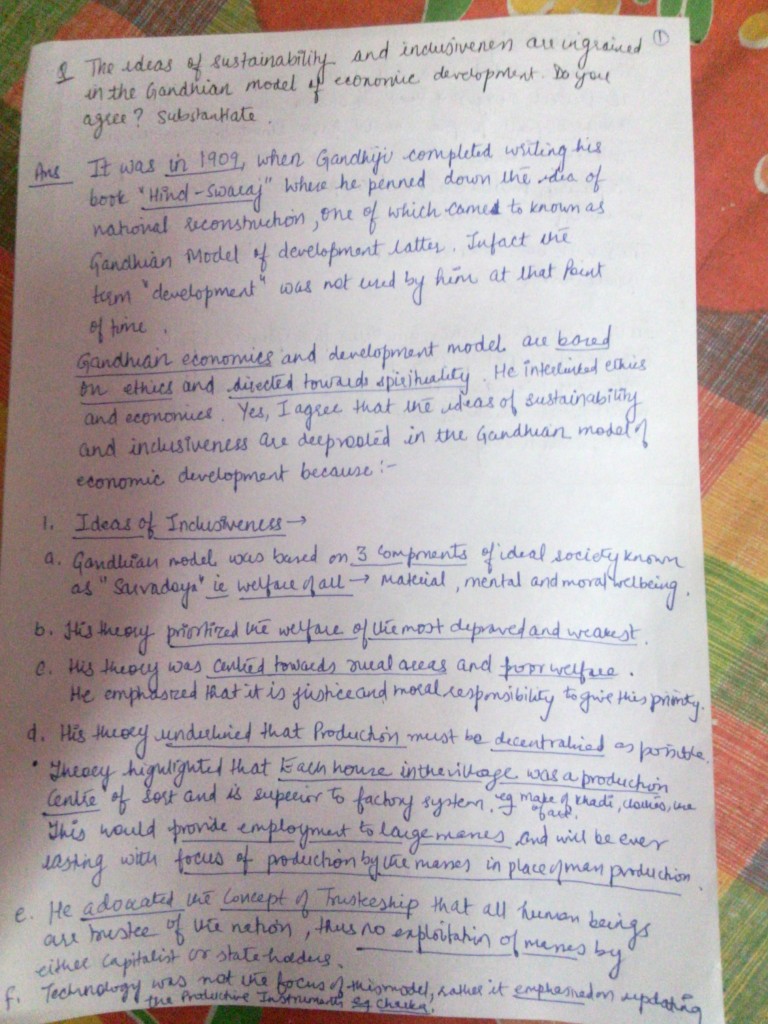 ①
Q The ideas of sustainability and inclusiveness are ingrained
in the Gandhian model of economic development. Do you
agree? Substantiate.
Ans It was in 1909, when Gandhiji completed writing his
book "Hind-Swaraj" where he penned down the idea of
national reconstruction, one of which came to known as
Gandhian Model of development latter. Infact the
term "development" was not used by him at that point
of time.
Gandhian economics and development model are based
on ethics and directed towards spirituality. He interlinked ethics
and economics. Yes, I agree that the ideas of sustainability
and inclusiveness are deeprooted in the Gandhian model of
economic development because:-
1. Ideas of Inclusiveness →
a. Gandhian model was based on 3 components of ideal society known
as "Sarvadaya" ie welfare of all → Material, mental and moral welbeing.
b. His theory prioritized the welfare of the most depraved and weakest.
c. His theory was centred towards rural areas and poor welfare.
He emphasized that it is justice and moral responsibility to give this priority.
d. His theory underlined that Production must be decentralised as possible.
• Theory highlighted that Each house in the village was a production
Centre of sort and is superior to factory system. eg make of khadi, clothes, use
of
This would provide employment to large masses and will be ever
lasting with focus of production by the masses in place of mass production.
e. He advocated the Concept of Trusteeship that all human beings
are trustee of the nation, thus no exploitation of masses by
either capitalist or state holders.
f. Technology was not the focus of this model, rather it emphasised on updating
the Productive Instruments eg Charka.